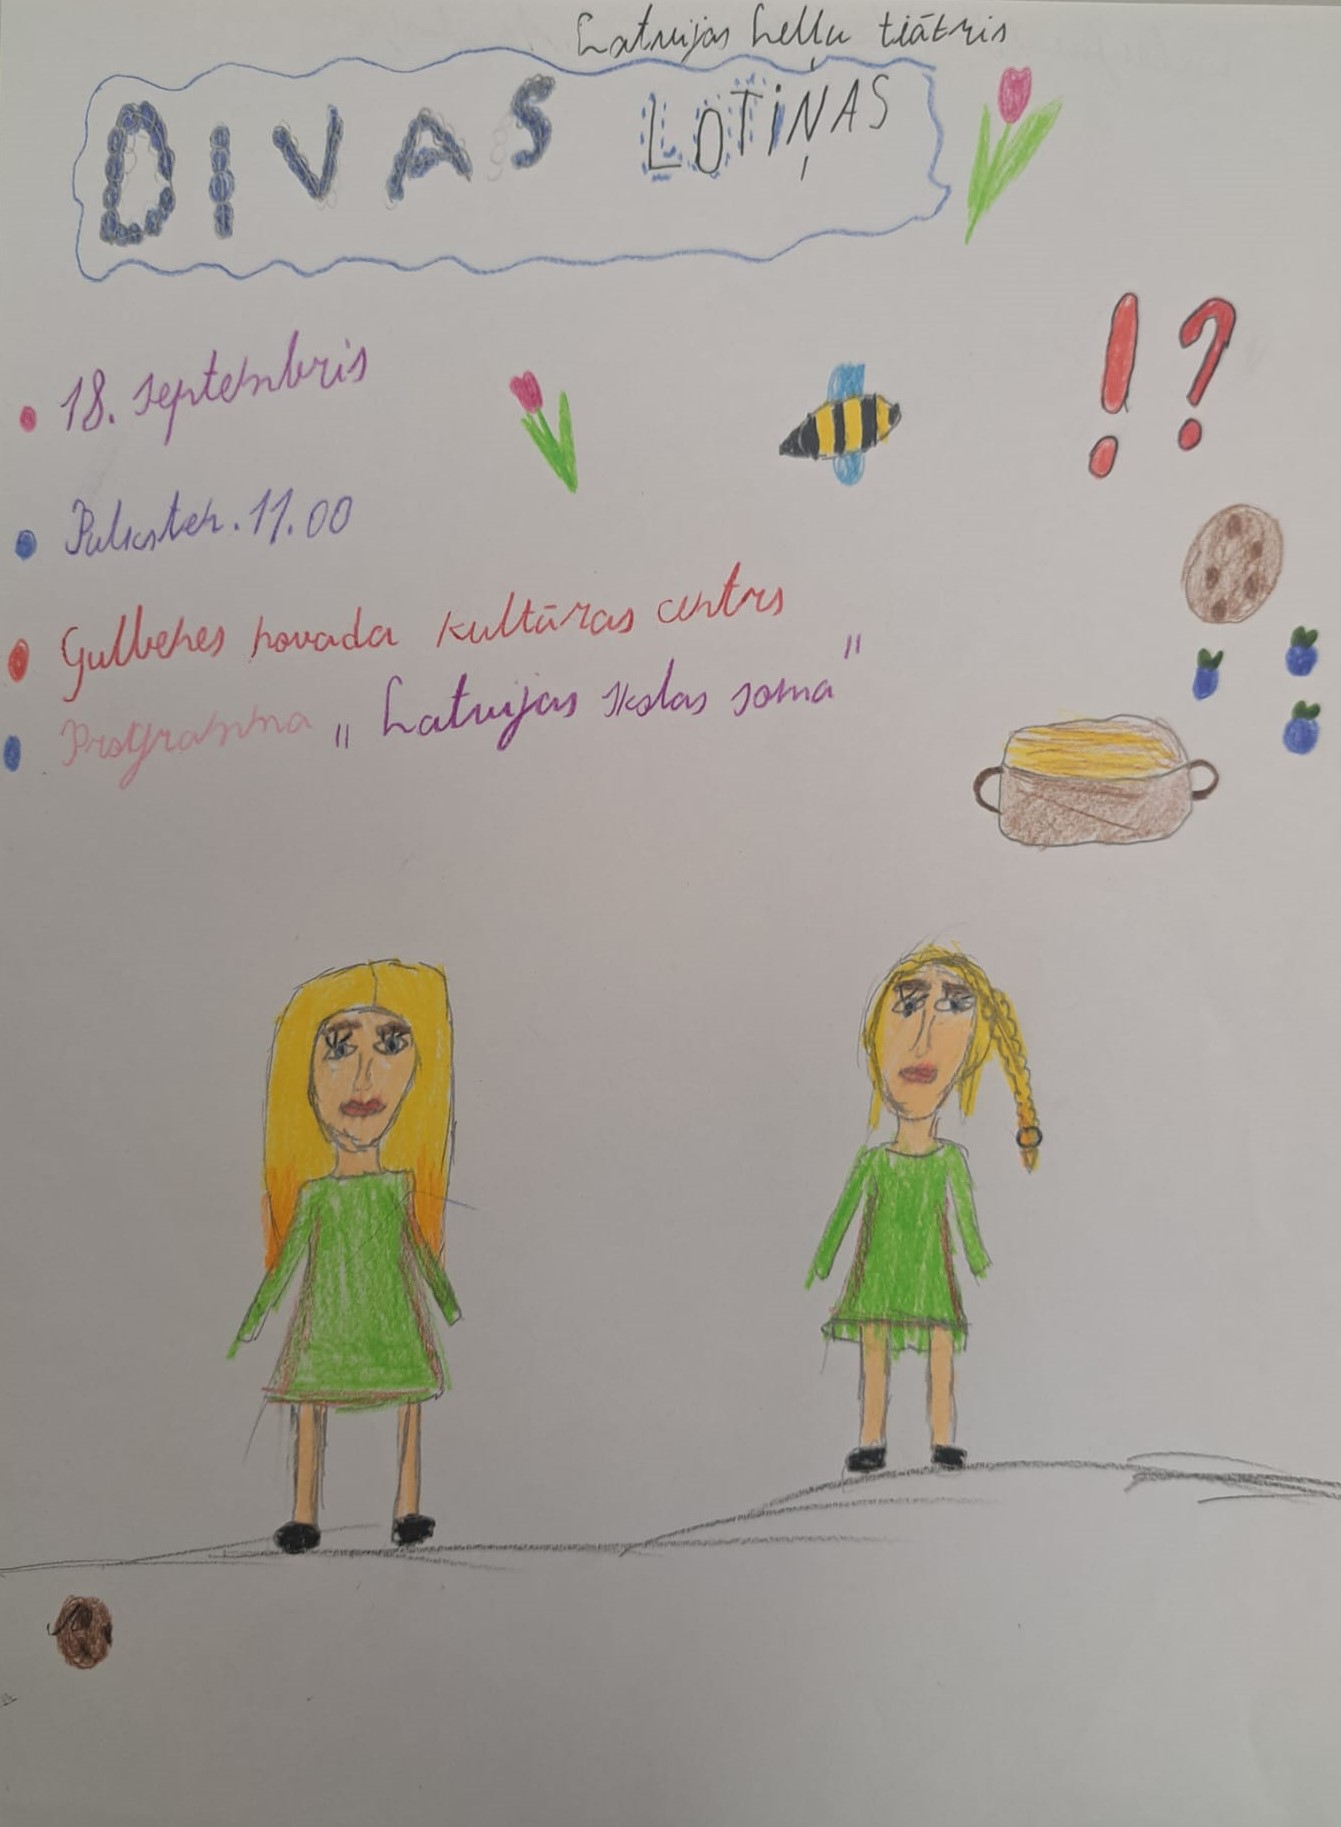 Latvijas Leļļu tiātris
DIVAS LOTIŅAS
18. septembris
! ?
Pulksten. 11.00
Gulbenes novada kultūras centrs
Programma „Latvijas skolas soma"